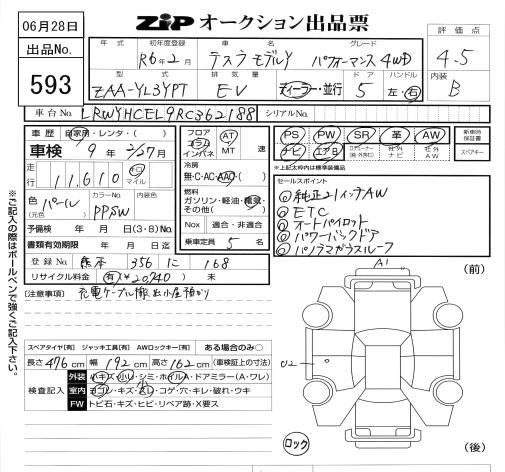 06月28日
ZiP オークション出品票
出品No.
593
年式 初年度登録 車名 グレード
R6年2月 テスラ モデルY パフォーマンス 4WD
型式 排気量 ドア ハンドル
ZAA-YL3YPT EV ディーラー・並行 5 左・右
評価点
4.5
内装
B
車台No. LRWYHCEL9RC362188 シリアルNo.
車歴 自家用・レンタ・( )
車検 9年 2/27月
走行 11,610 キロ マイル
色 (元色) パール カラーNo. PPSW 内装色
予備検 年 月 日(3・8)No.
書類有効期限 年 月 日迄
登録No. 熊本 356 に 168
リサイクル料金 有(¥20,740) 未
フロア コラム インパネ AT MT 速
冷房
無・C・AC・AAC・( )
燃料
ガソリン・軽油・電気・その他( )
Nox 適合・非適合
乗車定員 5 名
PS PW SR 革 AW 新車時保証書
ナビ エアB 社外ナビ 社外AW スペアキー
*上記太ワク内は標準装備品
セールスポイント
①純正21インチAW
②ETC
③オートパイロット
④パワーバックドア
⑤パノラマガラスルーフ
[注意事項] 充電ケーブル有
スペアタイヤ[有] ジャッキ工具[有] AWロックキー[有] ある場合のみ○
長さ476cm 幅192cm 高さ162cm (車検証上の寸法)
検査記入
外装 小キズ・凹・シミ・ホイルA・ドアミラー(A・ワレ)
室内 ヨゴレ・キズ・スレ・コゲ・穴・キレ・破れ・ウキ
FW トビ石・キズ・ヒビ・リペア跡・X要ス
A1
(前)
U2
ロック
(後)
※ご記入の際はボールペンで強くご記入下さい。